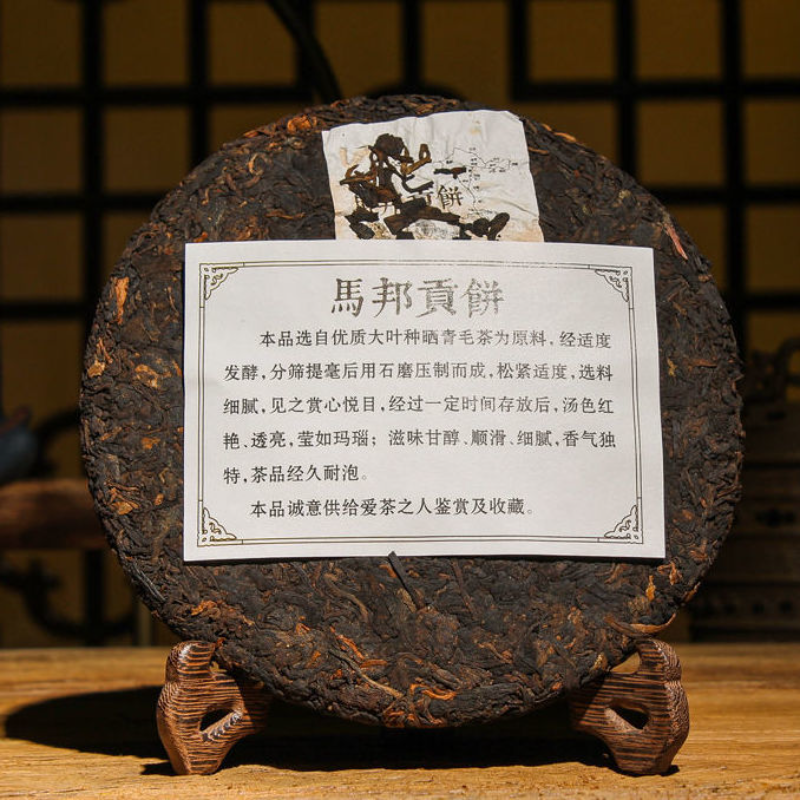 貢餅
馬邦貢餅
本品选自优质大叶种晒青毛茶为原料,经适度
发酵,分筛提毫后用石磨压制而成,松紧适度,选料
细腻,见之赏心悦目,经过一定时间存放后,汤色红
艳、透亮,莹如玛瑙;滋味甘醇、顺滑、细腻,香气独
特,茶品经久耐泡。
本品诚意供给爱茶之人鉴赏及收藏。